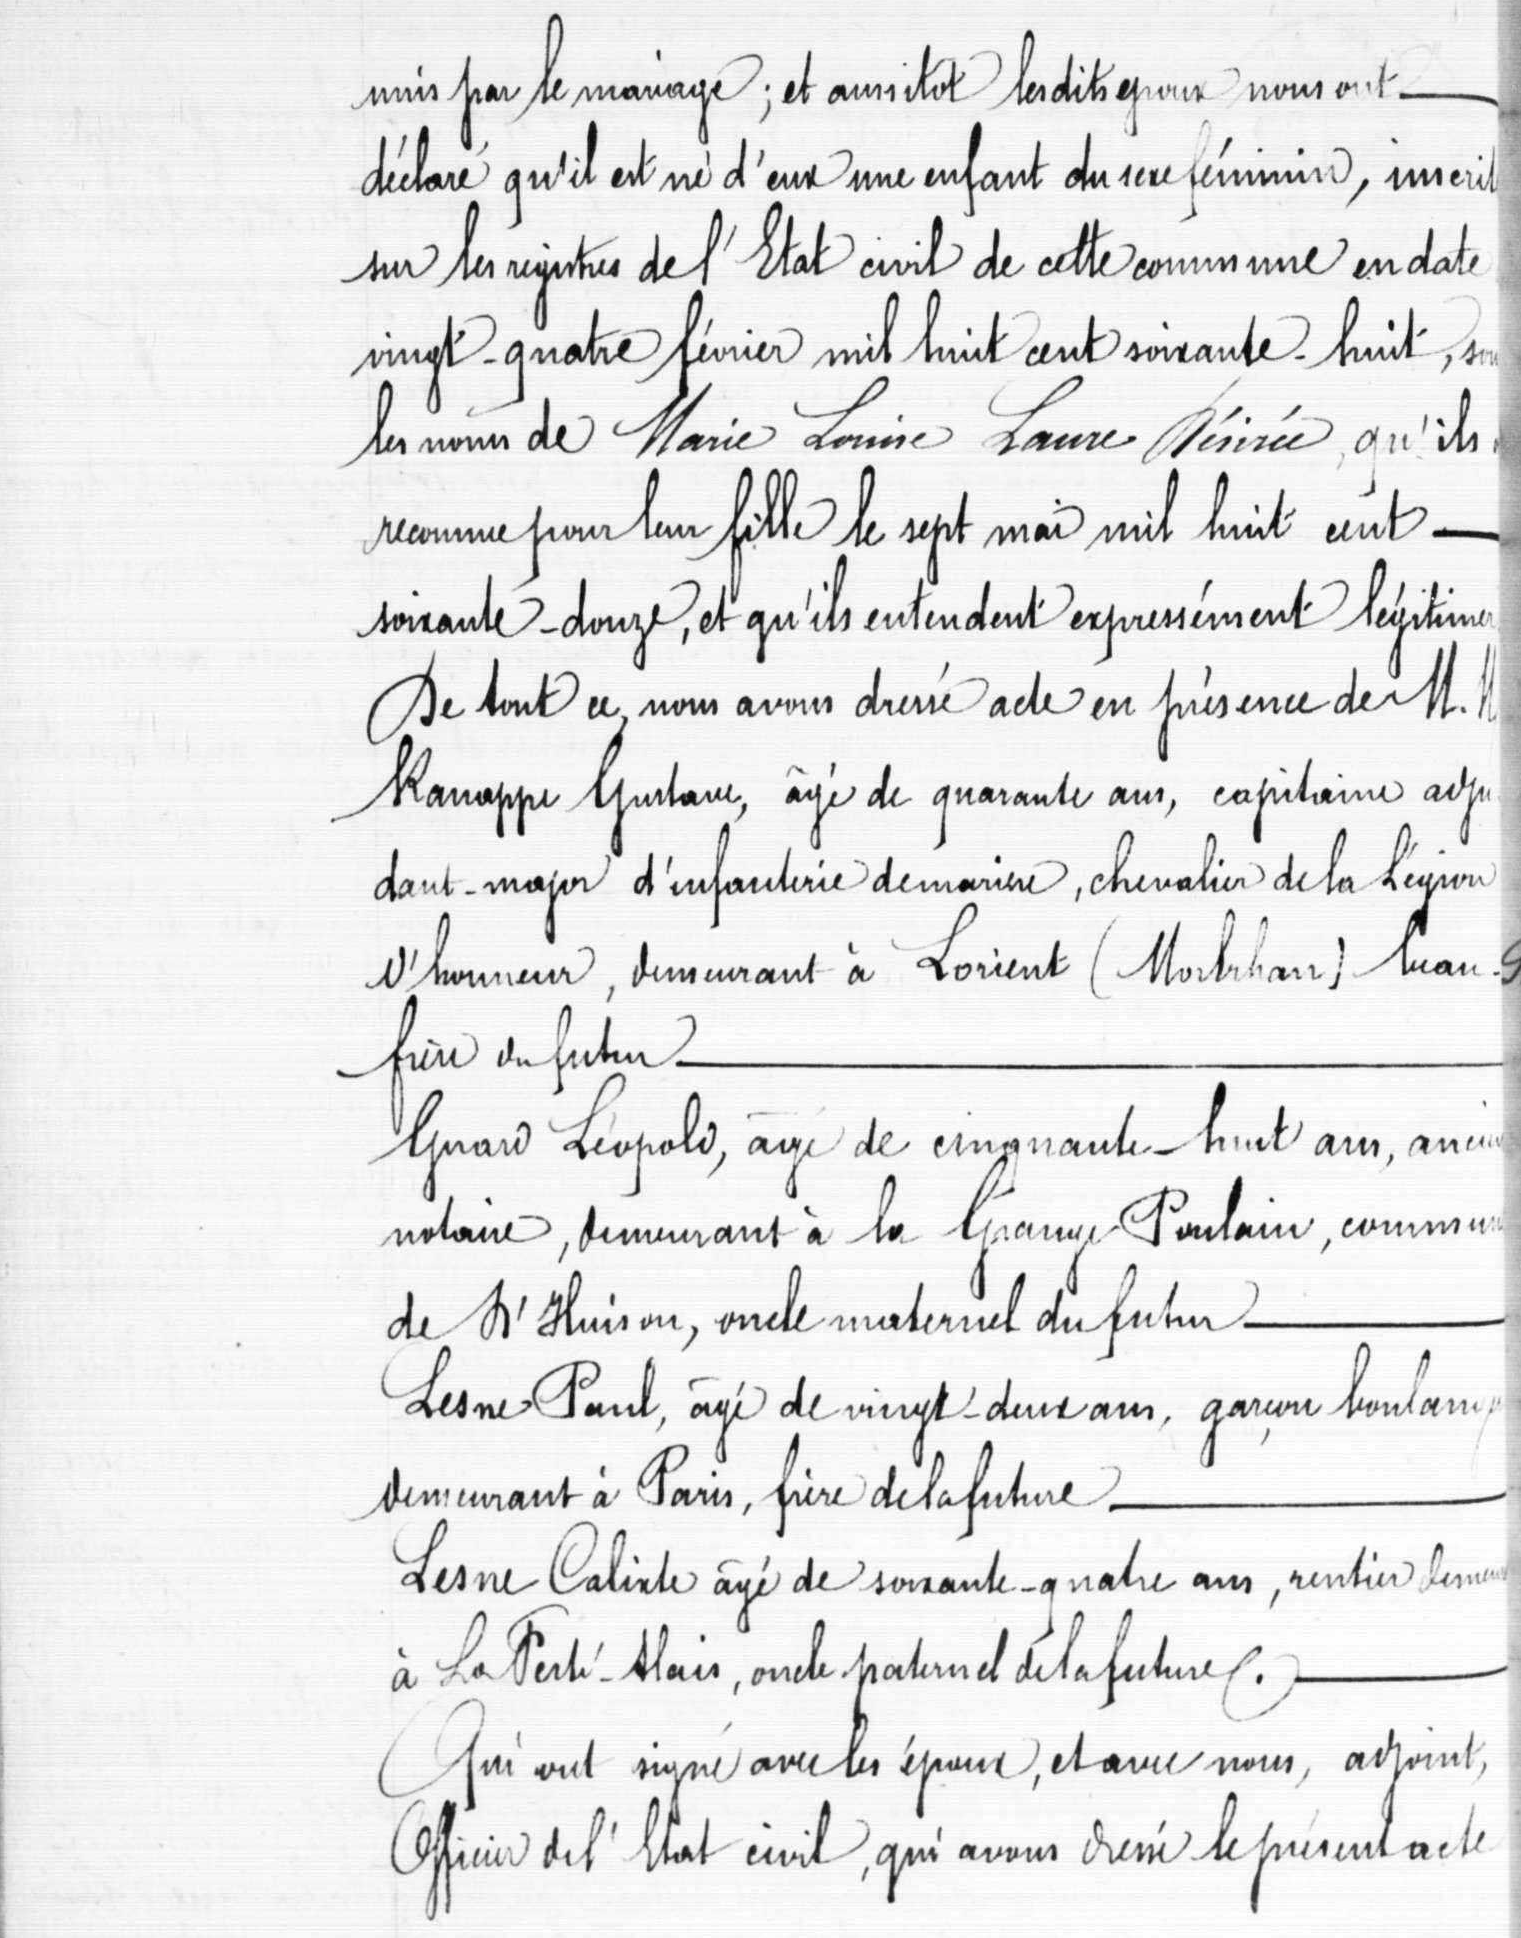 unis par le mariage ; et aussitôt lesdits époux nous ont
déclaré qu'il est né d'eux une enfant du sexe féminin, inscrit
sur les registres de l'Etat civil de cette commune en date
vingt-quatre février mil huit cent soixante-huit, sou
les noms de Marie Louise Laure Désirée, qu'ils
reconnue pour leur fille le sept mai mil huit cent
soixante-douze, et qu'ils entendent expressément légitimer
De tout ce, nous avons dressé acte en présence de M. M
Kanappe Gustave, âgé de quarante ans, capitaine adju
dant-major d'infanterie de marine, chevalier de la Légion
d'honneur, demeurant à Lorient (Morbihan) beau-
frère du futur
Léopold, âgé de cinquante-huit ans, ancien
notaire, demeurant à la Grange Poulain, commune
de Dt Huison, oncle maternel du futur
Lesne Paul, âgé de vingt-deux ans, garçon boulang
demeurant à Paris, frère de la future
Lesne Calixte âgé de soixante-quatre ans, rentier demeu
à La Ferté-Alais, oncle paternel de la future.
Qui ont signé avec les époux, et avec nous, adjoint,
Officier de l'Etat civil, qui avons dressé le présent acte